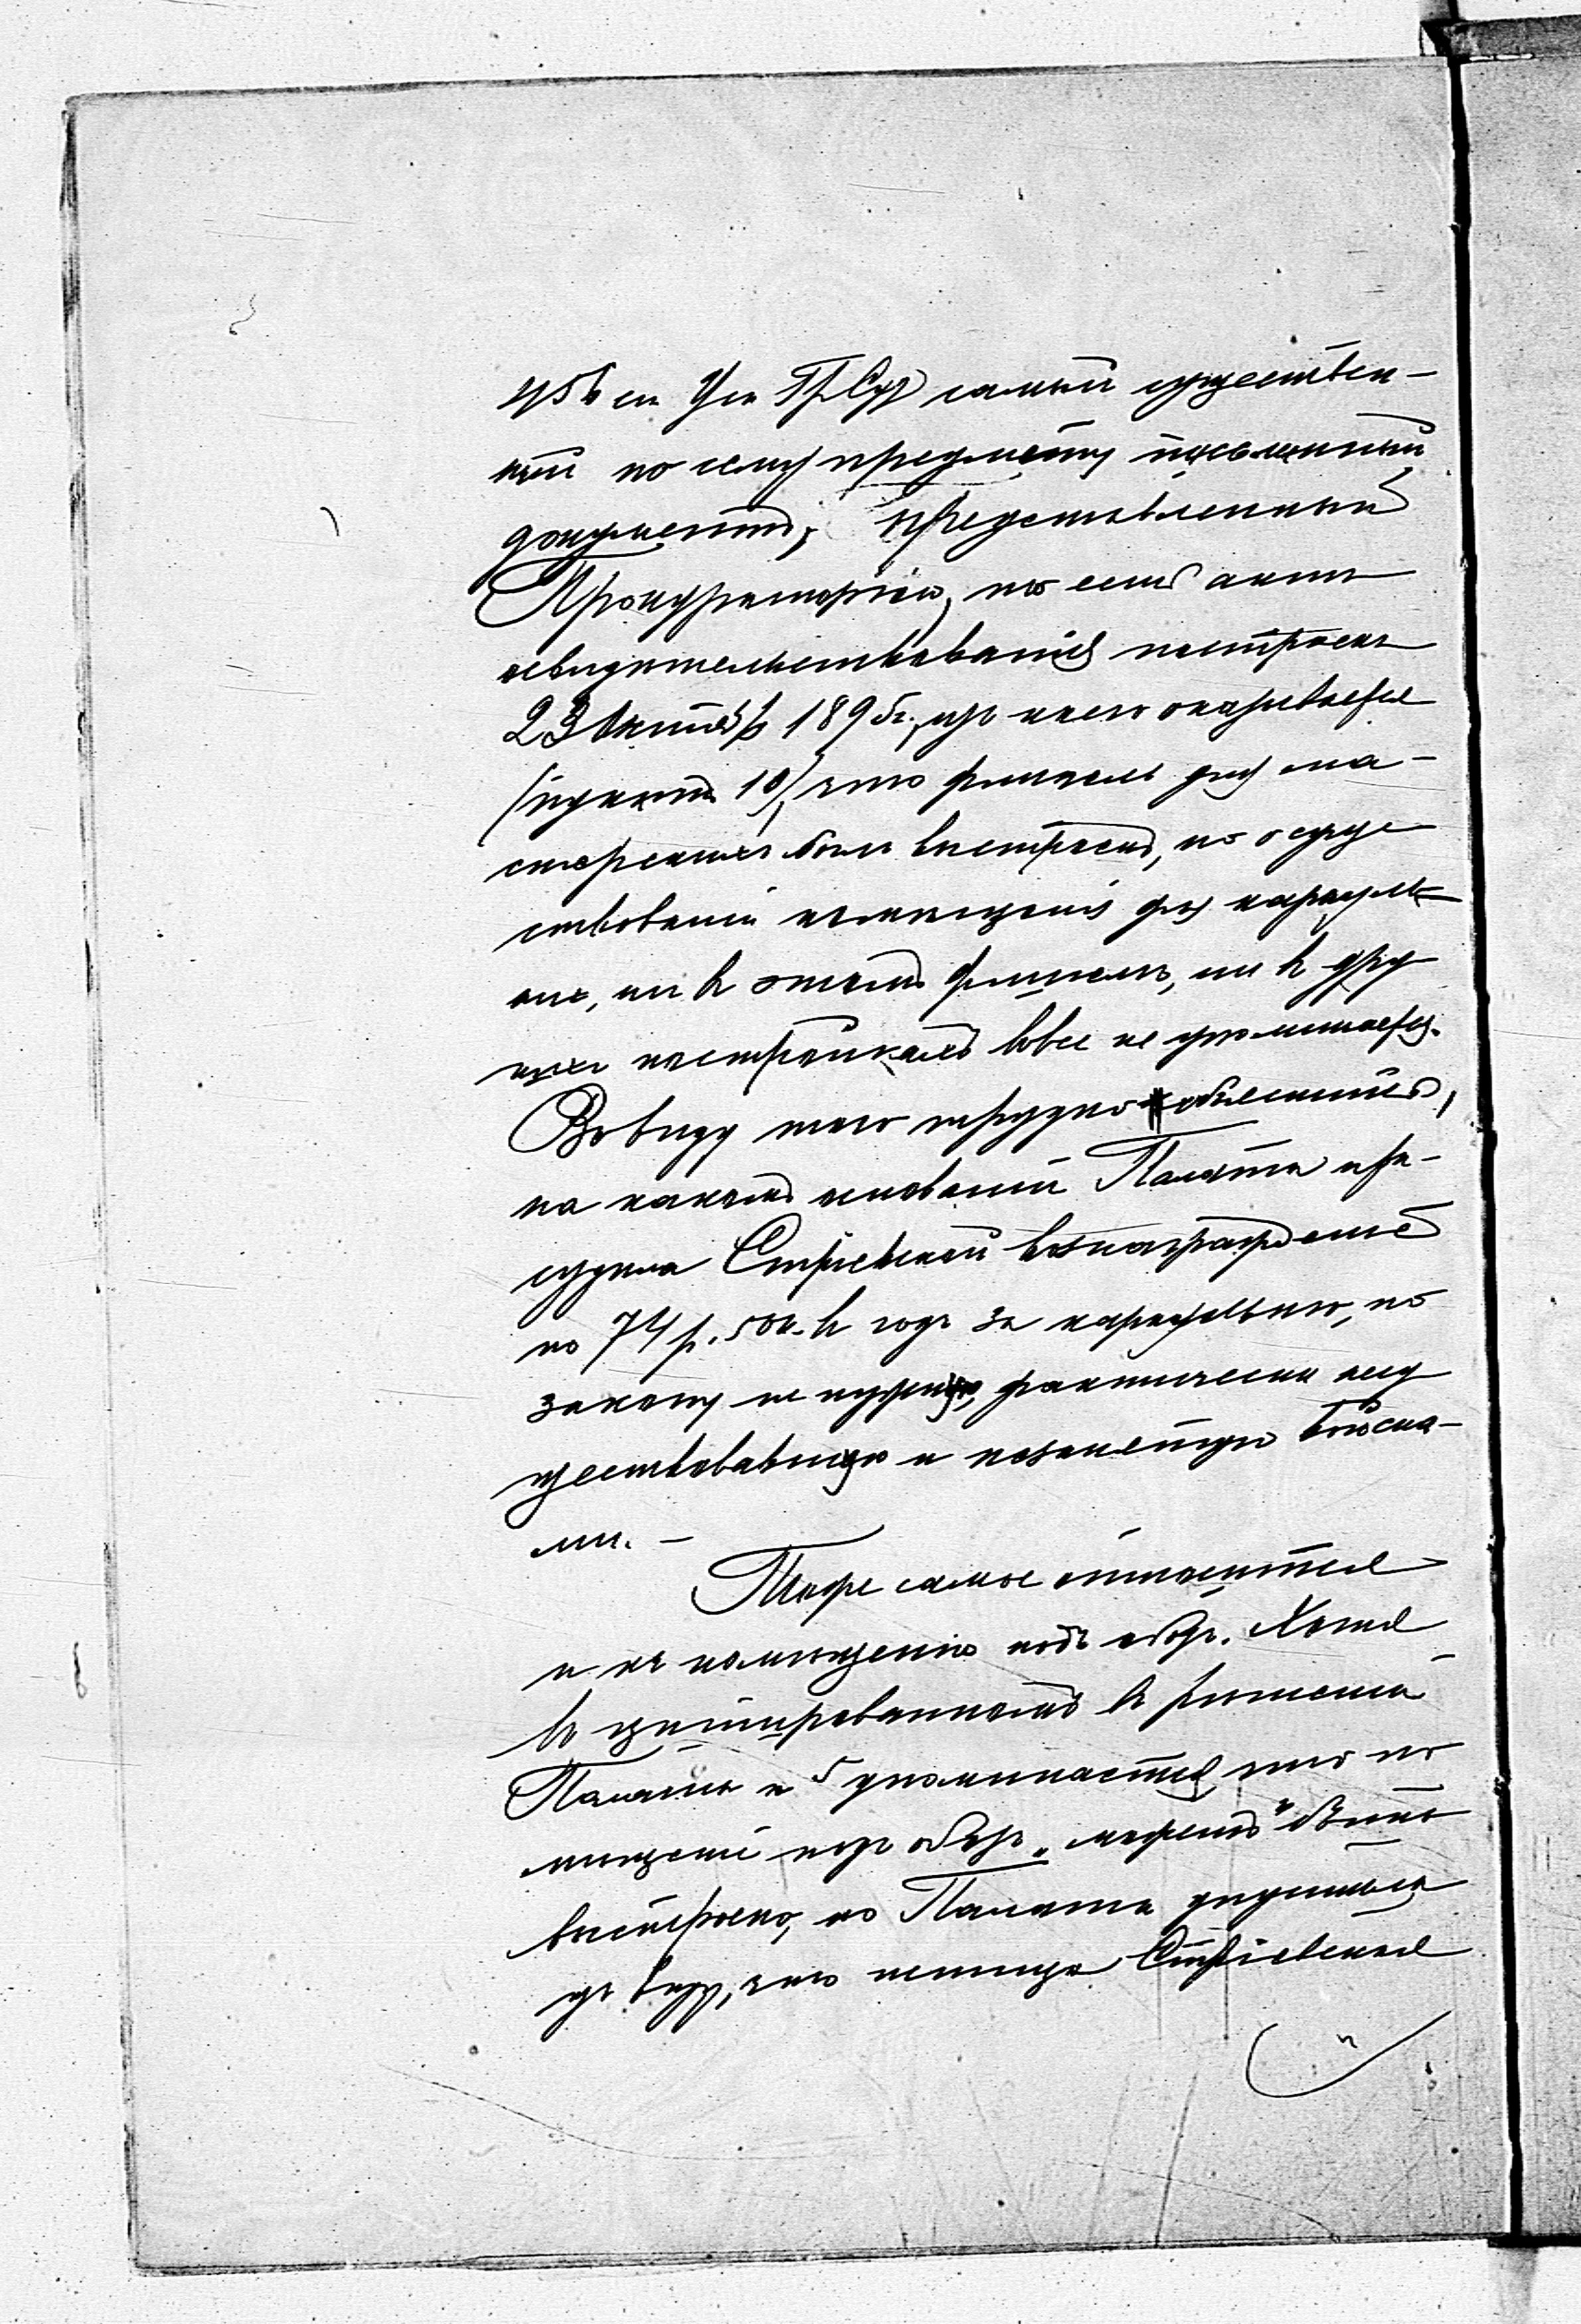 456 ст. Уст. Гр. Суд. самый существен-
ный по сему предмету письменный
документъ, представленный
Прокураторіею, то есть актъ
освидетельствованія построекъ
23 Октября 1895 г., изъ коего оказывается
(пунктъ 10), что флигель для ма-
стерскихъ былъ выстроенъ, но о суще
ствованіи помещенія для карауль
ни въ этомъ флигеле, ни въ дру
гихъ постройкахъ вовсе не упоминается.
Въ виду того трудно объяснить,
на какомъ основаніи Палата при-
судила Стріевской вознагражденіе
по 74 р. 50 к. въ годъ за караульню, по
закону не нужную, фактически несу
ществовавшую и незанятую войска-
ми. —
Тоже самое относится
и къ помещенію подъ обозъ. Хотя
въ цитированномъ въ решеніи
Палаты п. 5 упоминается, что по
мещеніе подъ обозъ „можетъ" быть
выстроено, но Палата упустила
изъ виду, что истица Стріевская